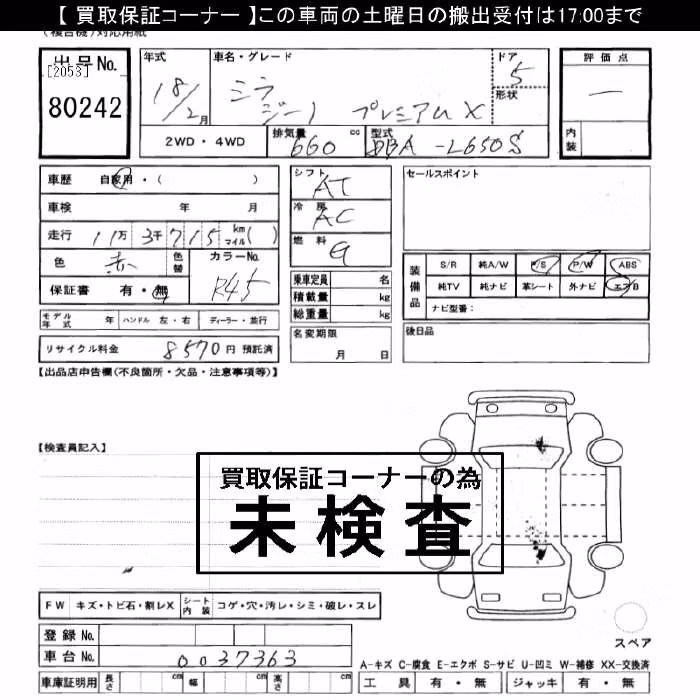 【 買取保証コーナー 】この車両の土曜日の搬出受付は17:00まで
出品No.
[2053]
80242
年式
18/2月
車名・グレード
ミラ
ジーノ プレミアムX
ドア
5
形状
評価点
―
内装
2WD・4WD
排気量
660 cc
型式
DBA-L650S
車歴 自家用・( )
車検 年 月
走行 11万3千715 km マイル( )
色 赤 色替
カラーNo.
R45
保証書 有・無
モデル年式 年 ハンドル 左・右 ディーラー・並行
リサイクル料金 8570円 預託済
シフト
AT
冷房
AC
燃料
G
乗車定員 名
積載量 kg
総重量 kg
名変期限
月 日
セールスポイント
装備品
S/R 純A/W P/S P/W ABS
純TV 純ナビ 革シート 外ナビ エアB
ナビ型番:
後日品
【出品店申告欄(不良箇所・欠品・注意事項等)】
【検査員記入】
買取保証コーナーの為
未検査
FW キズ・トビ石・割レX シート内装 コゲ・穴・汚レ・シミ・破レ・スレ
登録No.
車台No. 0037363
車庫証明用 長さ cm 幅 cm 高さ cm
スペア
A-キズ C-腐食 E-エクボ S-サビ U-凹ミ W-補修 XX-交換済
工具 有・無 ジャッキ 有・無